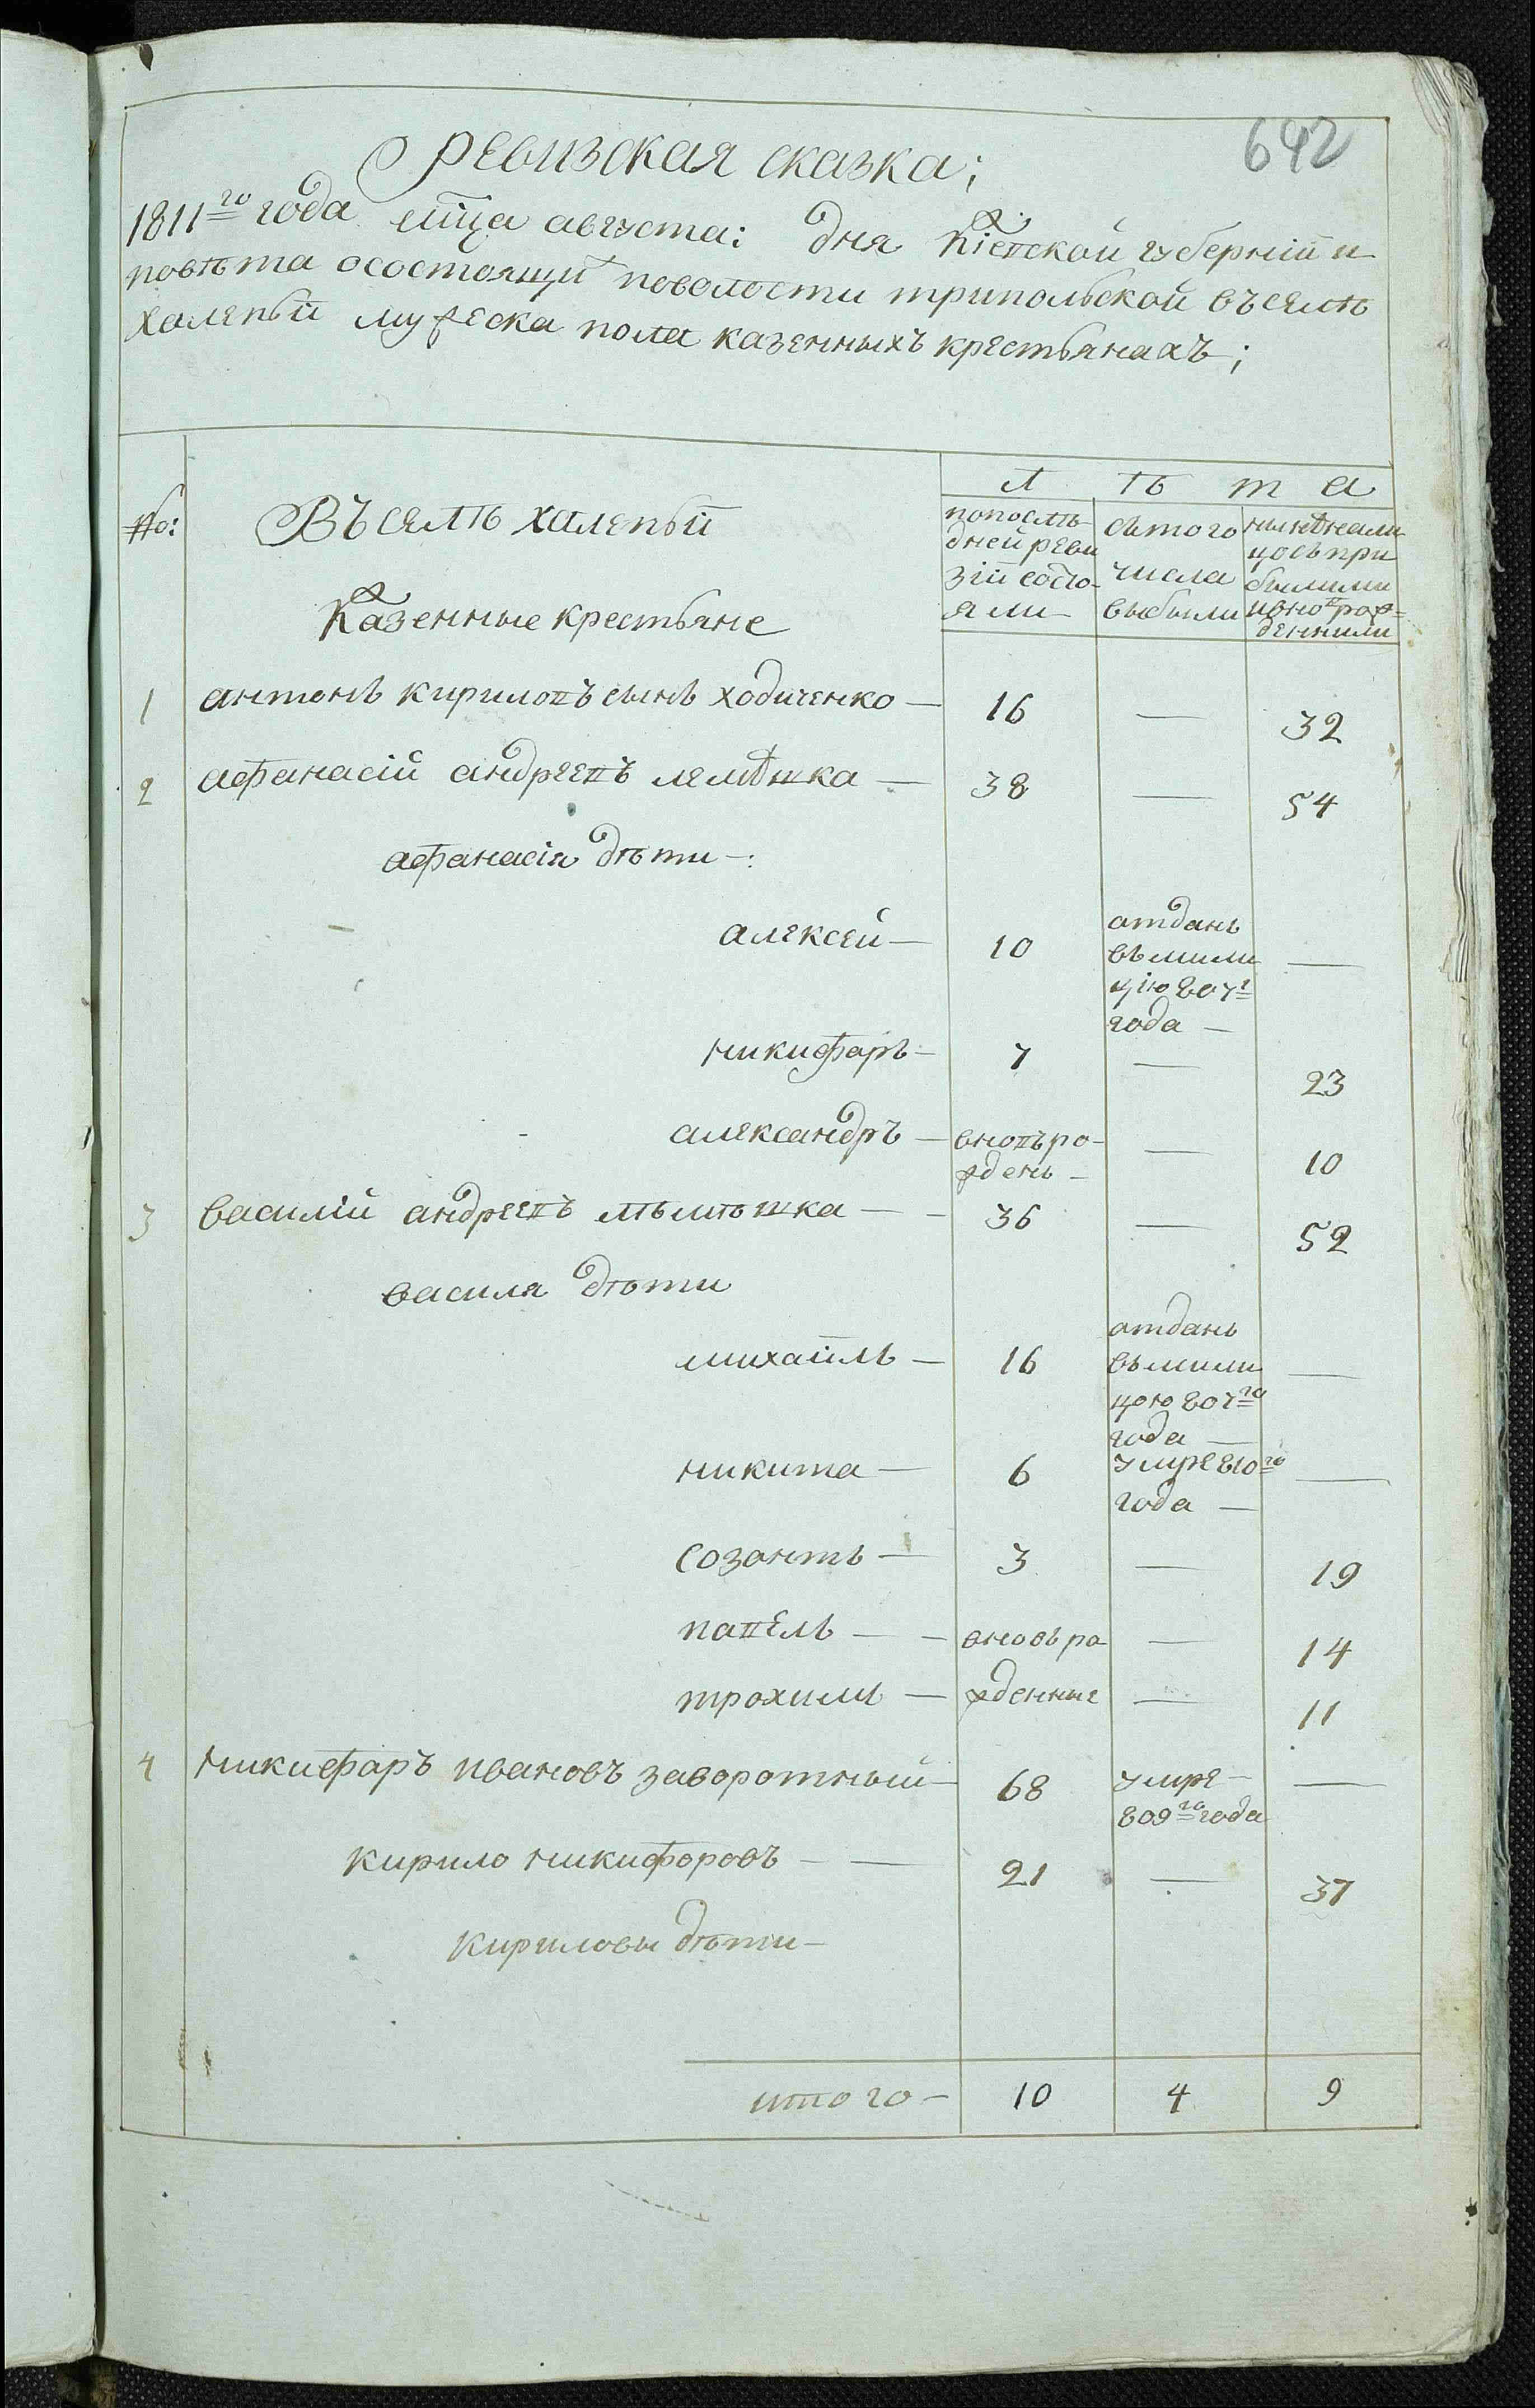 642
Ревизская сказка;
1811го года мца августа: дня Кіевской губерніи и
повѣта осостоящи поволости трипольской въ селѣ
халепьи мужеска пола казенныхъ крестьянахъ;
№: Въ селѣ халепьи
Казенные крестьяне
Л ѣ т а
попослѣ-
дней реви
зіи состо-
яли
съ того
числа
выбыли
нынѣ на ли
цо съ при
былыми
ивновь рож=
денными
1 антонъ кириловъ сынъ ходиченко — 16 — 32
2 афанасій андреевъ лемѣшка — 38 — 54
афанасія дѣти —:
алексей — 10 отданъ
въ мили
цію 807г
года — —
никифаръ — 7 — 23
александръ — вновъ ро-
жденъ — — 10
3 василій андреевъ лѣмѣшка — — 36 — 52
василя дѣти
михаилъ — 16 отданъ
въ мили
цою 807го
года — —
никита — 6 умре 810го
года — —
созонтъ — 3 — 19
павелъ — — вновъ ро — 14
трохимъ — жденные — 11
4 никифаръ ивановъ заворотный — 68 умре —
809го года —
кирило никифоровъ — — 21 — 37
кириловы дѣти —
итого — 10 4 9